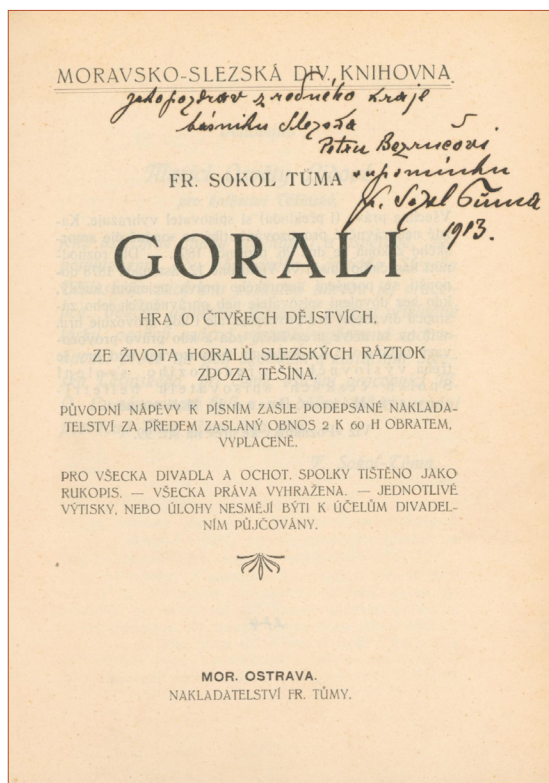 MORAVSKO-SLEZSKÁ DIV. KNIHOVNA.
jako pozdrav z rodného kraje
básníku Slezska
Petru Bezručovi
vzpomínku
Fr. Sokol Tůma
1913.
FR. SOKOL TŮMA
GORALI
HRA O ČTYŘECH DĚJSTVÍCH,
ZE ŽIVOTA HORALŮ SLEZSKÝCH RÁZTOK
ZPOZA TĚŠÍNA.
PŮVODNÍ NÁPĚVY K PÍSNÍM ZAŠLE PODEPSANÉ NAKLADA-
TELSTVÍ ZA PŘEDEM ZASLANÝ OBNOS 2 K 60 H OBRATEM,
VYPLACENĚ.
PRO VŠECKA DIVADLA A OCHOT. SPOLKY TIŠTĚNO JAKO
RUKOPIS. — VŠECKA PRÁVA VYHRAŽENA. — JEDNOTLIVÉ
VÝTISKY, NEBO ÚLOHY NESMĚJÍ BÝTI K ÚČELŮM DIVADEL-
NÍM PŮJČOVÁNY.
MOR. OSTRAVA.
NAKLADATELSTVÍ FR. TŮMY.